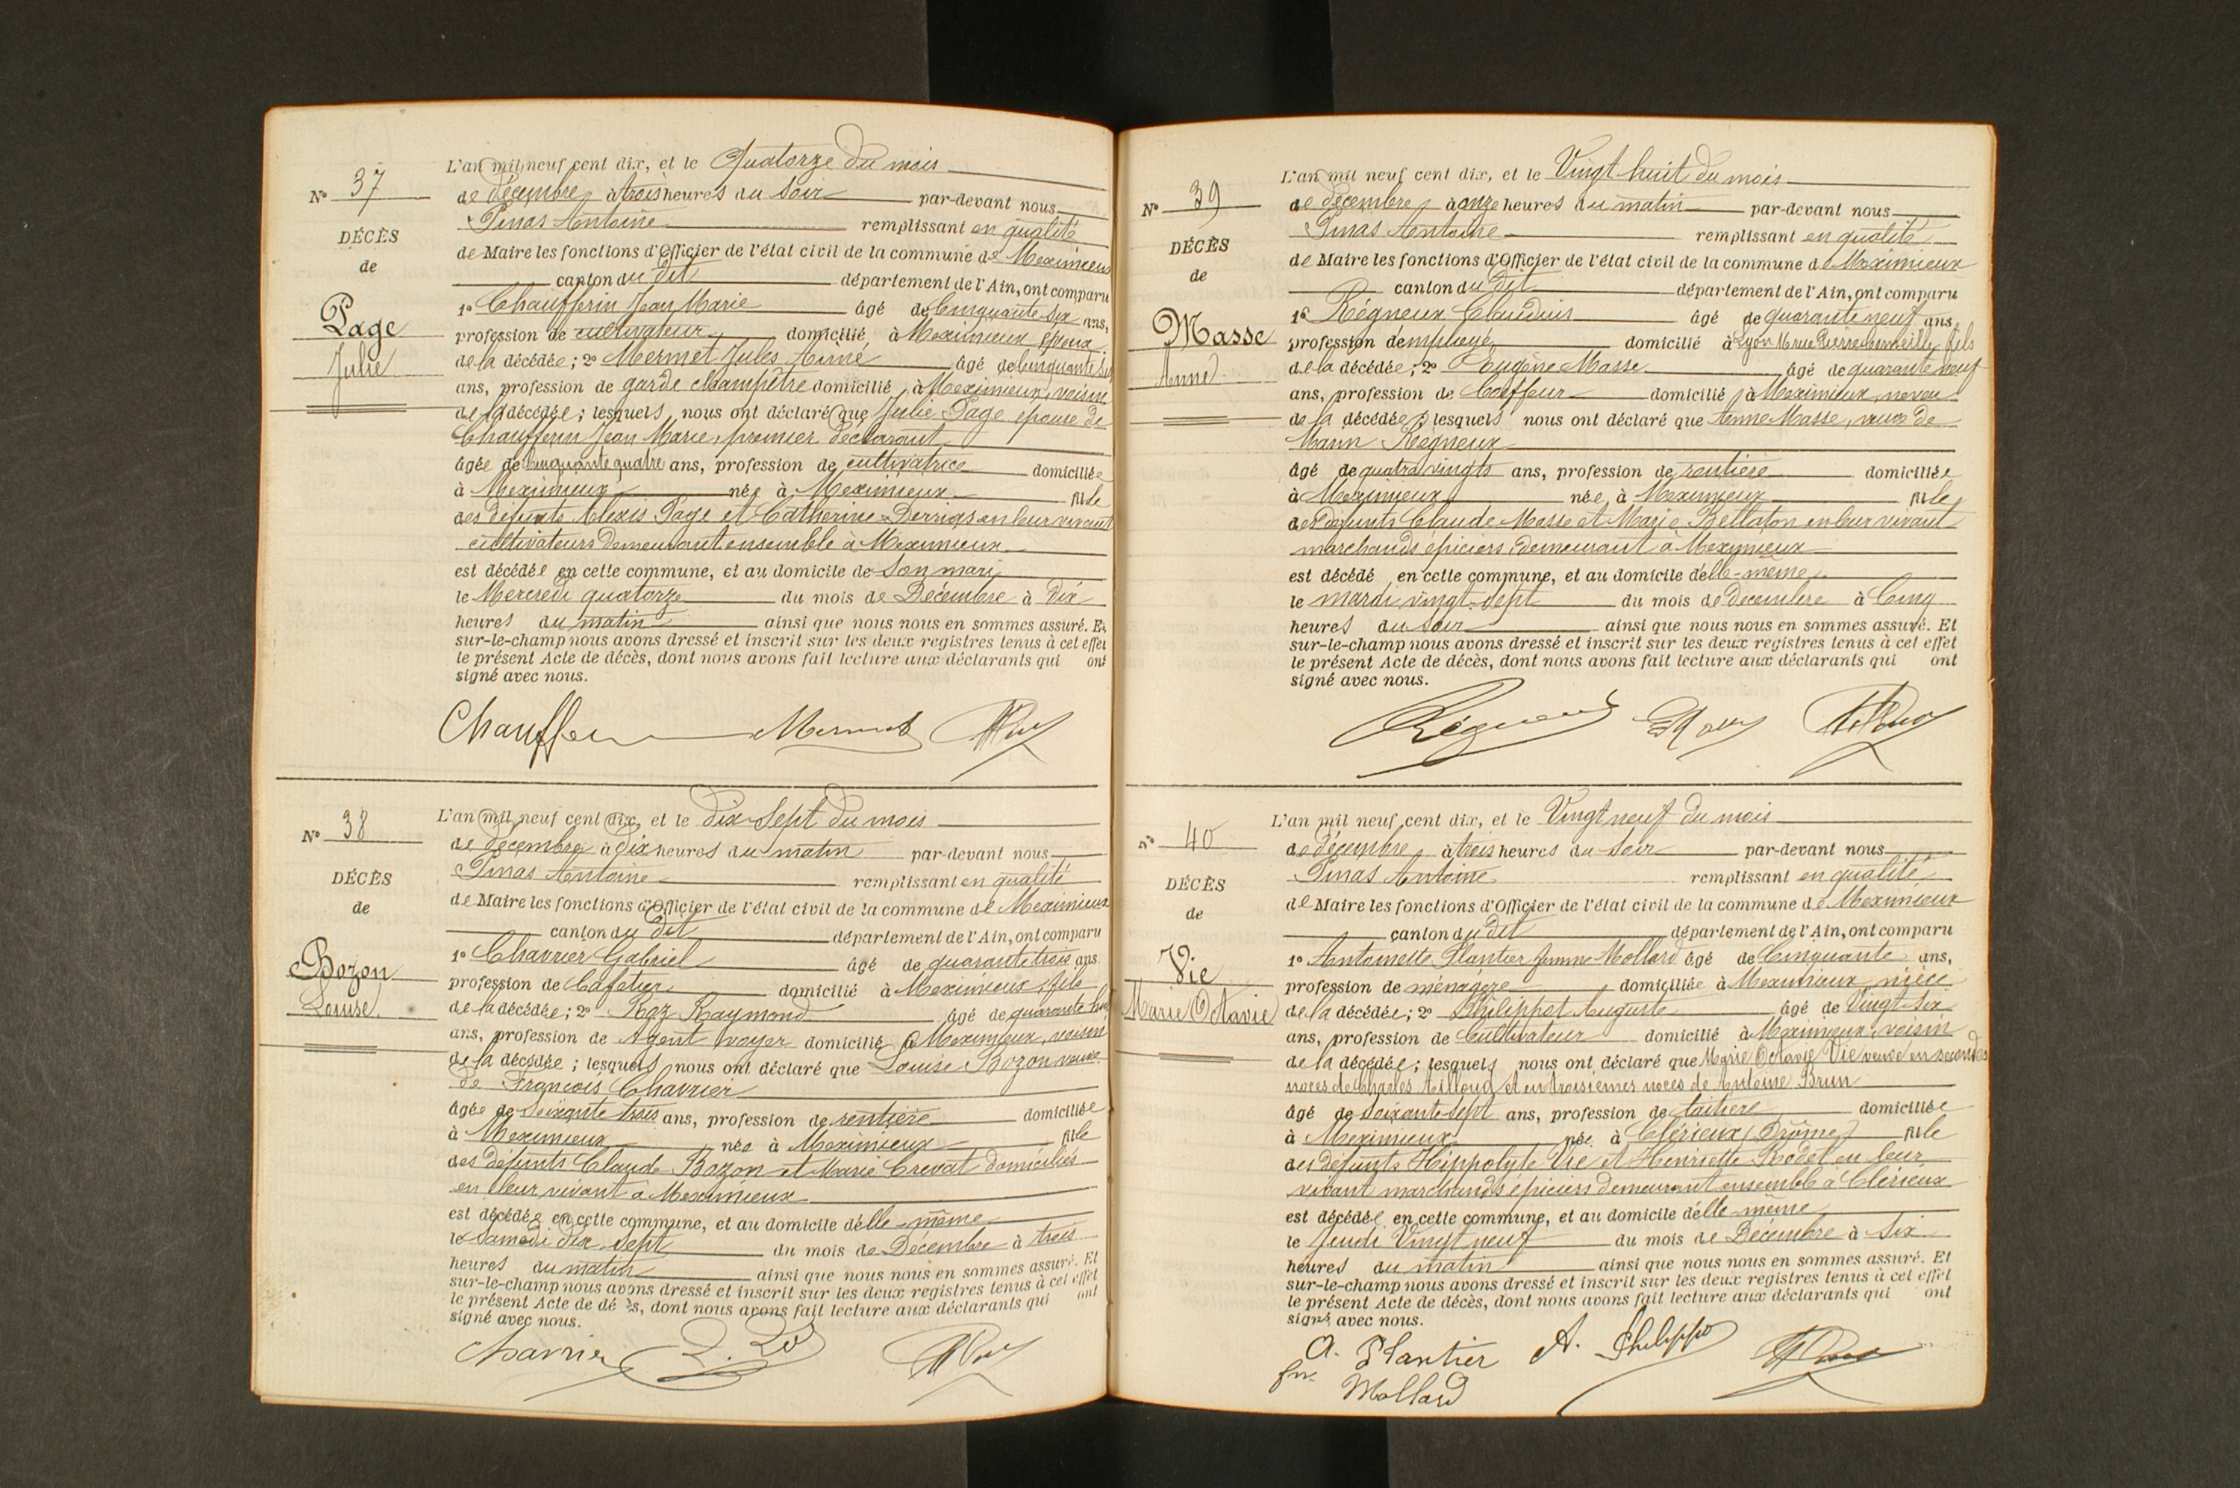 N° 37
DÉCÈS
de
Page
Julie
L'an mil neuf cent dix, et le Quatorze du mois
de décembre à trois heures du soir par-devant nous
Pinas Antoine remplissant en qualité
de Maire les fonctions d'Officier de l'état civil de la commune de Meximieux
canton du dit département de l'Ain, ont comparu
1° Chaufferin Jean Marie âgé de Cinquante six ans,
profession de cultivateur domicilié à Meximieux époux
de la décédée; 2° Mermet Jules Aimé âgé de Cinquante six
ans, profession de garde champêtre domicilié à Meximieux, voisin
de la décédée; lesquels nous ont déclaré que Julie Page épouse de
Chaufferin Jean Marie, premier déclarant
âgée de Cinquante quatre ans, profession de cultivatrice domiciliée
à Meximieux née à Meximieux fille
des défunts Alexis Page et Catherine en leur vivant
cultivateurs demeurant ensemble à Meximieux
est décédée en cette commune, et au domicile de son mari
le Mercredi quatorze du mois de Décembre à dix
heures du matin ainsi que nous nous en sommes assuré. Et
sur-le-champ nous avons dressé et inscrit sur les deux registres tenus à cet effet
le présent Acte de décès, dont nous avons fait lecture aux déclarants qui ont
signé avec nous.
Chaufferin Mermet
N° 38
DÉCÈS
de
Bozon
Louise
L'an mil neuf cent dix, et le dix Sept du mois
de décembre à dix heures du matin par-devant nous
Pinas Antoine remplissant en qualité
de Maire les fonctions d'Officier de l'état civil de la commune de Meximieux
canton du dit département de l'Ain, ont comparu
1° Chavrier Gabriel âgé de quarante trois ans
profession de Cafetier domicilié à Meximieux fils
de la décédée; 2° Roz Raymond âgé de quarante
ans, profession de Agent voyer domicilié à Meximieux, voisin
de la décédée; lesquels nous ont déclaré que Louise Bozon veuve
de François Chavrier
âgée de Soixante trois ans, profession de rentière domiciliée
à Meximieux née à Meximieux fille
des défunts Claude Bozon et Marie Crevat domiciliés
en leur vivant à Meximieux
est décédée en cette commune, et au domicile d'elle-même
le Samedi dix sept du mois de Décembre à trois
heures du matin ainsi que nous nous en sommes assuré. Et
sur-le-champ nous avons dressé et inscrit sur les deux registres tenus à cet effet
le présent Acte de décès, dont nous avons fait lecture aux déclarants qui ont
signé avec nous.
Chavrier
N° 39
DÉCÈS
de
Masse
Anne
L'an mil neuf cent dix, et le Vingt huit du mois
de décembre à onze heures du matin par-devant nous
Pinas Antoine remplissant en qualité
de Maire les fonctions d'Officier de l'état civil de la commune de Meximieux
canton du dit département de l'Ain, ont comparu
1° Régneux Claudius âgé de quarante neuf ans,
profession d'employé domicilié à Lyon rue Pierre Corneille, fils
de la décédée; 2° Eugène Masse âgé de quarante neuf
ans, profession de Coiffeur domicilié à Meximieux, neveu
de la décédée; lesquels nous ont déclaré que Anne Masse, veuve de
Marin Régneux
âgé de quatre vingts ans, profession de rentière domiciliée
à Meximieux née à Meximieux fille
des défunts Claude Masse et Marie Bellaton en leur vivant
marchands épiciers, demeurant à Meximieux
est décédé en cette commune, et au domicile d'elle-même
le mardi vingt-sept du mois de décembre à Cinq
heures du soir ainsi que nous nous en sommes assuré. Et
sur-le-champ nous avons dressé et inscrit sur les deux registres tenus à cet effet
le présent Acte de décès, dont nous avons fait lecture aux déclarants qui ont
signé avec nous.
Régneux
N° 40
DÉCÈS
de
Vie
Marie Octavie
L'an mil neuf cent dix, et le Vingt neuf du mois
de décembre à trois heures du soir par-devant nous
Pinas Antoine remplissant en qualité
de Maire les fonctions d'Officier de l'état civil de la commune de Meximieux
canton du dit département de l'Ain, ont comparu
1° Antoinette Plantier femme Mollard âgé de Cinquante ans,
profession de ménagère domiciliée à Meximieux, nièce
de la décédée; 2° Philippot Auguste âgé de Vingt-six
ans, profession de Cultivateur domicilié à Meximieux, voisin
de la décédée; lesquels nous ont déclaré que Marie Octavie Vie veuve en secondes
noces de Charles Ailloud et en troisièmes noces de Antoine Brun
âgé de soixante sept ans, profession de laitière domiciliée
à Meximieux née à Clérieux (Drôme) fille
des défunts Hippolyte Vie et Henriette Rodet en leur
vivant marchands épiciers demeurant ensemble à Clérieux
est décédée en cette commune, et au domicile d'elle-même
le Jeudi Vingt neuf du mois de Décembre à Six
heures du matin ainsi que nous nous en sommes assuré. Et
sur-le-champ nous avons dressé et inscrit sur les deux registres tenus à cet effet
le présent Acte de décès, dont nous avons fait lecture aux déclarants qui ont
signé avec nous.
A. Plantier A. Philippot
fme Mollard